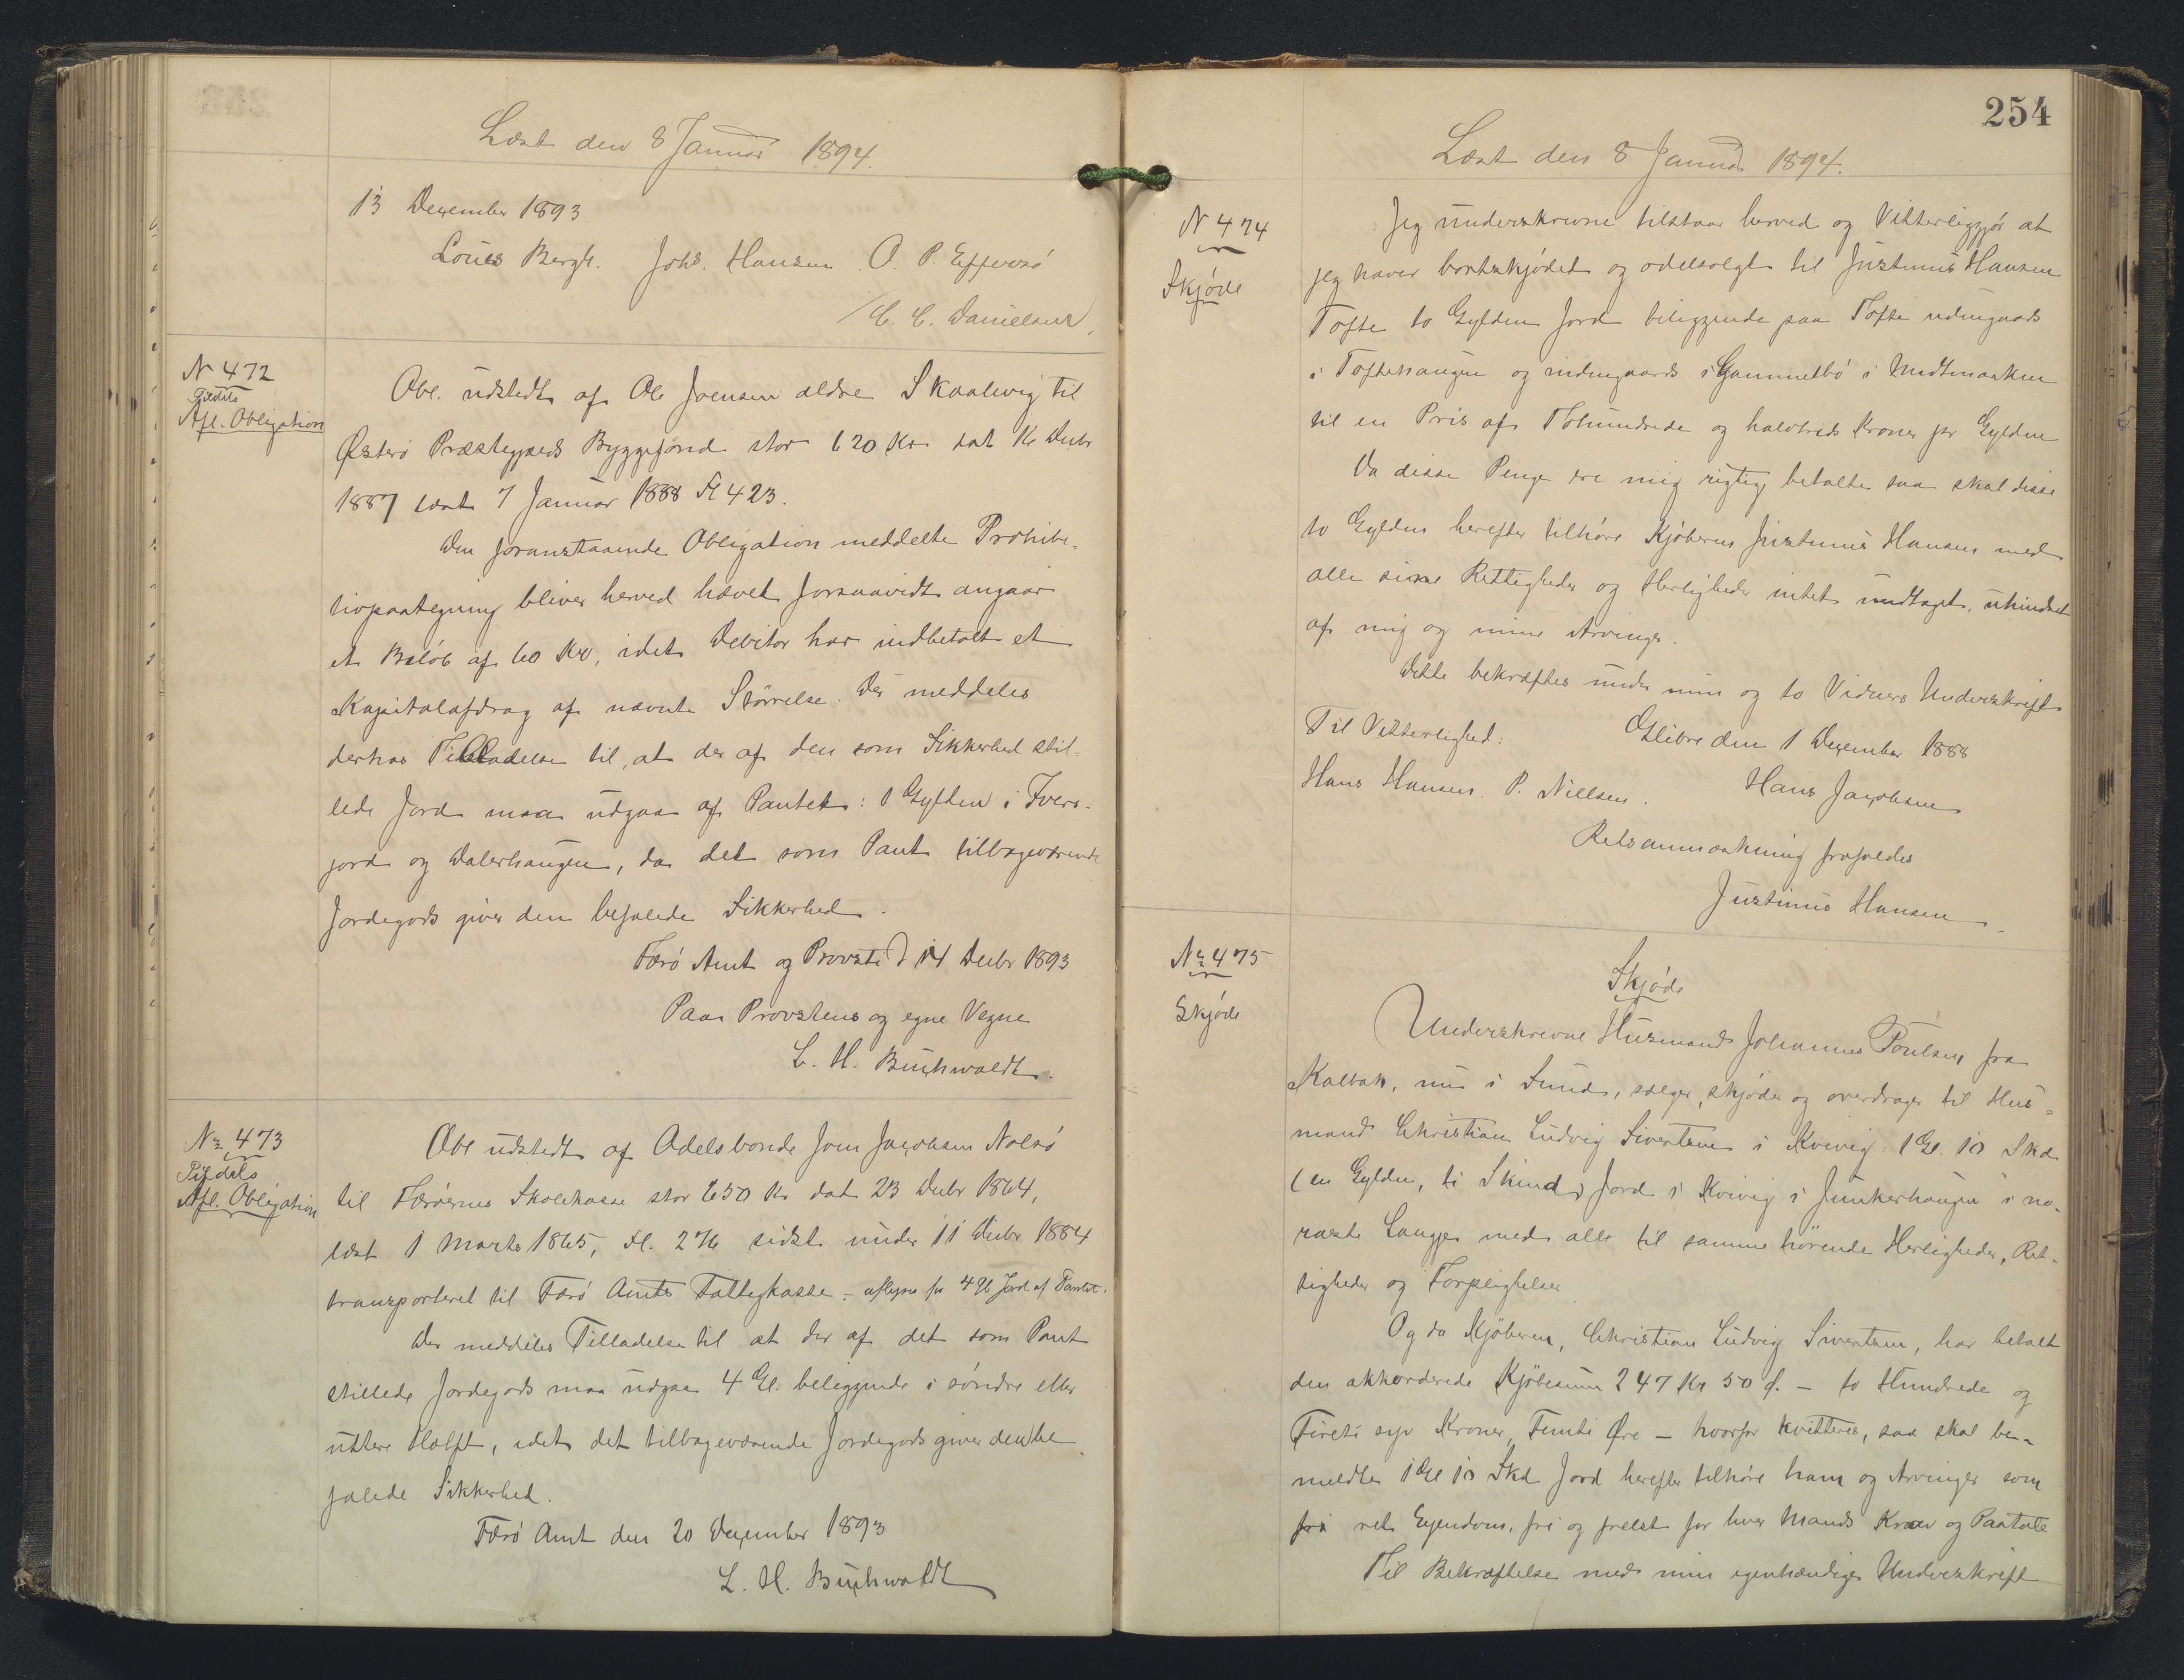 Læst den 8 Januar 1894.
13 December 1893.
Louis Bergh. Johs. Hansen O. P. Effersö
/C. C. Danielsen
N 472
Tildels
Afl. Obligation
Obl. udstedt af Ole Joensen ældre Skaalevig til
Østerö Præstegjælds Byggefond stor 620 Kr dat 16 Decbr
1887 læst 7 Januar 1888 Fl 423.
Den foranstaaende Obligation meddelte Prohibi-
tivpaategning bliver herved hævet forsaavidt angaar
et Beløb af 60 Kr, idet Debitor har indbetalt et
Kapitalafdrag af nævnte Störrelse. Der meddeles
derhos Tilladelse til, at der af den som Sikkerhed stil-
lede Jord maa udgaa af Pantet: 1 Gylden i Fvers-
jord og Dalerhaugen, da det som Pant tilbageværende
Jordegods giver den befalede Sikkerhed.
Færö Amt og Provsti d 14 Decbr 1893
Paa Provstens og egne Vegne
L. H. Buchwaldt.
Nr. 473
Tildels
Afl. Obligation
Obl udstedt af Odelsbonde Joen Jacobsen Nolsö
til Færöernes Skolekasse stor 650 Kr dat 23 Decbr 1864,
læst 1 Marts 1865, Fl. 276 sidst under 11 Decbr 1884
transporteret til Færö Amts Fattigkasse - aflyses for 4 Gl Jord af Pantet.
Der meddeles Tilladelse til at der af det som Pant
stillede Jordegods maa udgaa 4 Gl. beliggende i søndre eller
uttere Halft, idet det tilbageværende Jordegods giver den be
falede Sikkerhed.
Færö Amt den 20 December 1893
L. H. Buchwaldt
254
Læst den 8 Januar 1894.
N 474
Skjöde
Jeg underskrevne tilstaar herved og Vitterliggjör at
jeg haver bortskjödet og odelsolgt til Justinus Hansen
Tofte to Gylden Jord beliggende paa Tofte udengaards
i Toftehaugen og indengaards i Gammelbö i Midtmarken
til en Pris af Tohundrede og halvtreds Kroner pr Gylden
Da disse Penge ere mig rigtig betalte saa skal disse
to Gylden herefter tilhöre Kjöberen Justinus Hansen med
alle sine Rettigheder og Herligheder intet undtaget, uhindret
af mig og mine Arvinger.
Dette bekræftes under min og to Vidners Underskrift
Glibre den 1 December 1888
Til Vitterlighed:
Hans Hansen. P. Nielsen. Hans Jacobsen
Retsanmærkning frafaldes
Justinus Hansen
Nr 475
Skjöde
Skjöde
Underskrevne Husmand Johannes Poulsen fra
Kalbak, nu i Sund, sælger, skjöder og overdrager til Hus-
mand Christian Ludvig Sivertsen i Kvivig 1 Gl. 10 Skd
(en Gylden, ti Skind) Jord i Kvivig i Junkerhaugen i no-
raste Laugje med alle til samme hörende Herligheder, Ret-
tigheder og Forpligtelser
Og da Kjöberen, Christian Ludvig Sivertsen, har betalt
den akkorderede Kjöbesum 247 Kr 50 Ø. - to Hundrede og
Fireti syv Kroner Femti Øre - hvorfor kvitteres, saa skal be-
meldte 1 Gl 10 Skd Jord herefter tilhöre ham og Arvinger som
fri ret Ejendom, fri og frelst for hver Mands Krav og Paatale
Til Bekræftelse med min egenhændige Underskrift